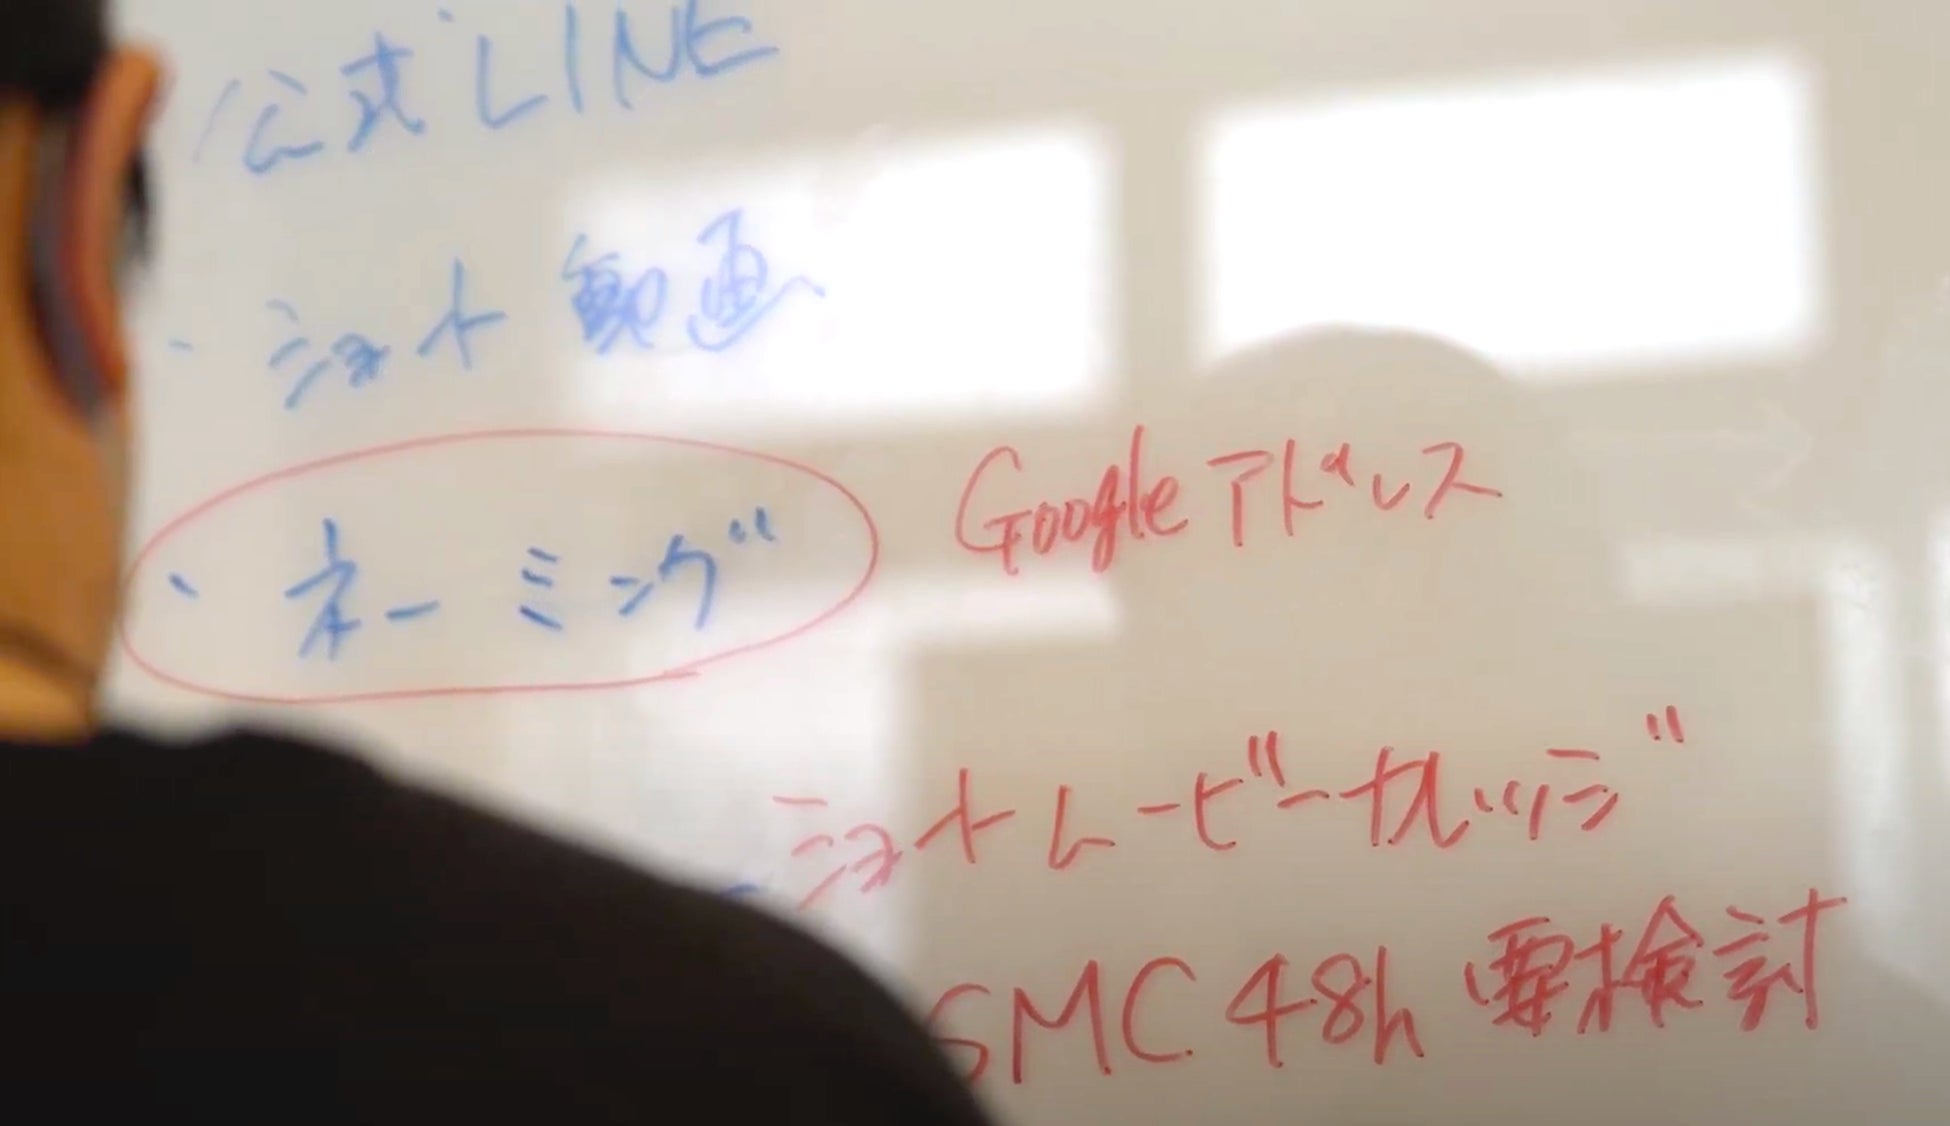 公式LINE
・ショート動画
・ネーミング
Googleアドレス
ショートムービーカレッジ
SMC 48h 要検討